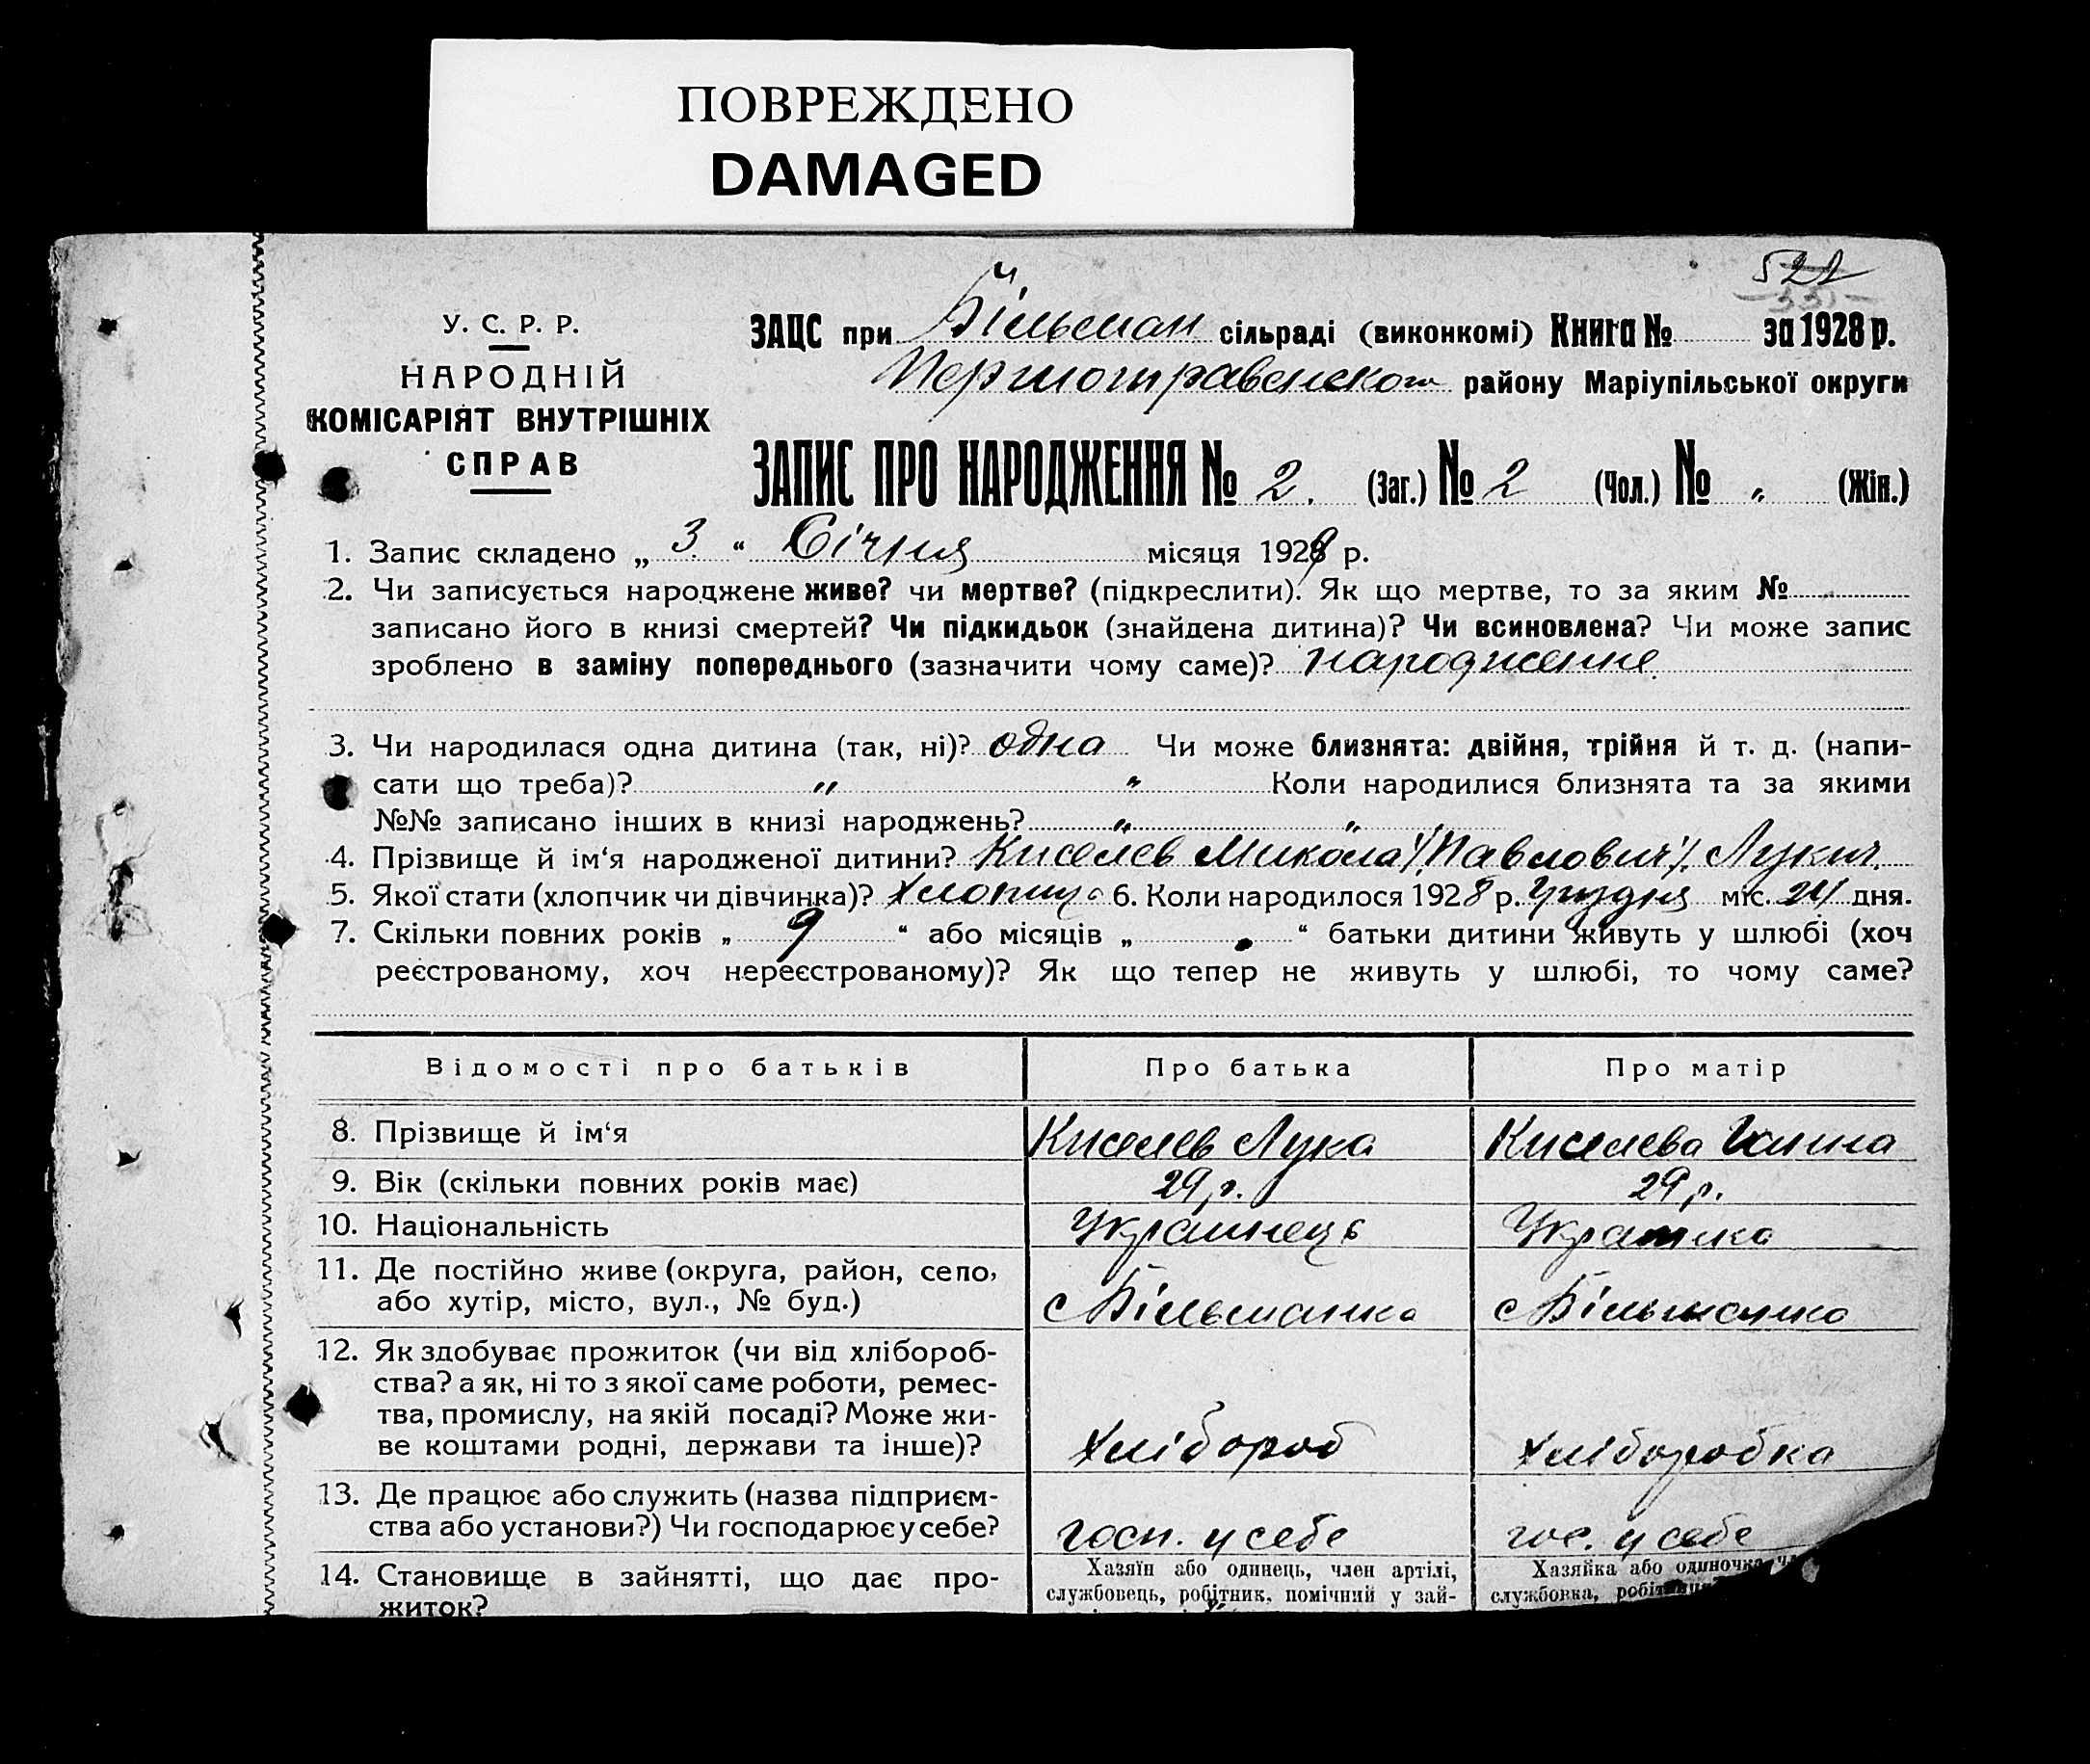 ПОВРЕЖДЕНО
DAMAGED
У. С. Р. Р.
НАРОДНІЙ
КОМІСАРІЯТ ВНУТРІШНІХ
СПРАВ
ЗАЦС при Більман сільраді (виконкомі) Книга № за 1928 р.
Першотравенского району Маріупільської округи
ЗАПИС ПРО НАРОДЖЕННЯ № 2. (Заг.) № 2 (Чол.) № „ (Жін.)
1. Запис складено „ 3 “ Січня місяця 1929 р.
2. Чи записується народжене живе? чи мертве? (підкреслити). Як що мертве, то за яким №
записано його в книзі смертей? Чи підкидьок (знайдена дитина)? Чи всиновлена? Чи може запис
зроблено в заміну попереднього (зазначити чому саме)? народження.
3. Чи народилася одна дитина (так, ні)? одна Чи може близнята: двійня, трійня й т. д. (напи-
сати що треба)? „ „ Коли народилися близнята та за якими
№№ записано інших в книзі народжень? „ „
4. Прізвище й ім‘я народженої дитини? Киселев Микола /Павлович/ Лукич.
5. Якої стати (хлопчик чи дівчинка)? Хлопиць 6. Коли народилося 1928 р. Грудня міс. 24 дня.
7. Скільки повних років „ 9 “ або місяців „ “ батьки дитини живуть у шлюбі (хоч
реєстрованому, хоч нереєстрованому)? Як що тепер не живуть у шлюбі, то чому саме?
Відомості про батьків Про батька Про матір
8. Прізвище й ім‘я Киселев Лука Киселева Ганна
9. Вік (скільки повних років має) 29 р. 29 р.
10. Національність Украинець Украинка
11. Де постійно живе (округа, район, село,
або хутір, місто, вул., № буд.) с Більманка с Більманка
12. Як здобуває прожиток (чи від хлібороб-
ства? а як, ні то з якої саме роботи, ремес-
тва, промислу, на якій посаді? Може жи-
ве коштами родні, держави та інше)? Хлібороб Хліборобка
13. Де працює або служить (назва підприєм-
ства або установи?) Чи господарює у себе? госп. у себе гос. у себе
14. Становище в зайнятті, що дає про- Хазяїн або одинець, член артілі, Хазяйка або одиночка
житок? службовець, робітник, помічний у зай- службовка,